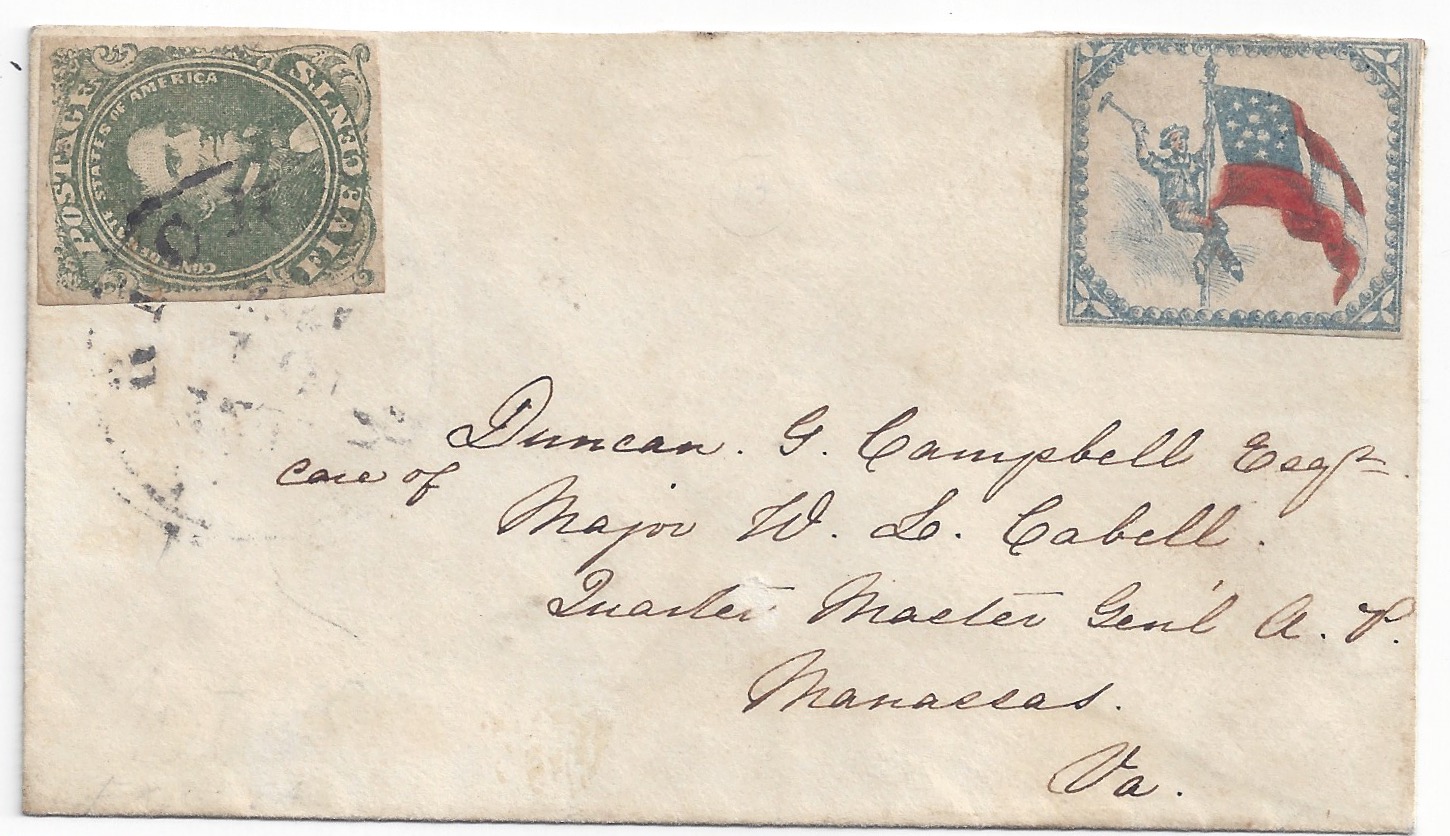 POSTAGE
CONFEDERATE STATES OF AMERICA
FIVE CENTS
Duncan. G. Campbell Esqr
care of
Major W. L. Cabell.
Quarter Master Genl A. P.
Manassas.
Va.